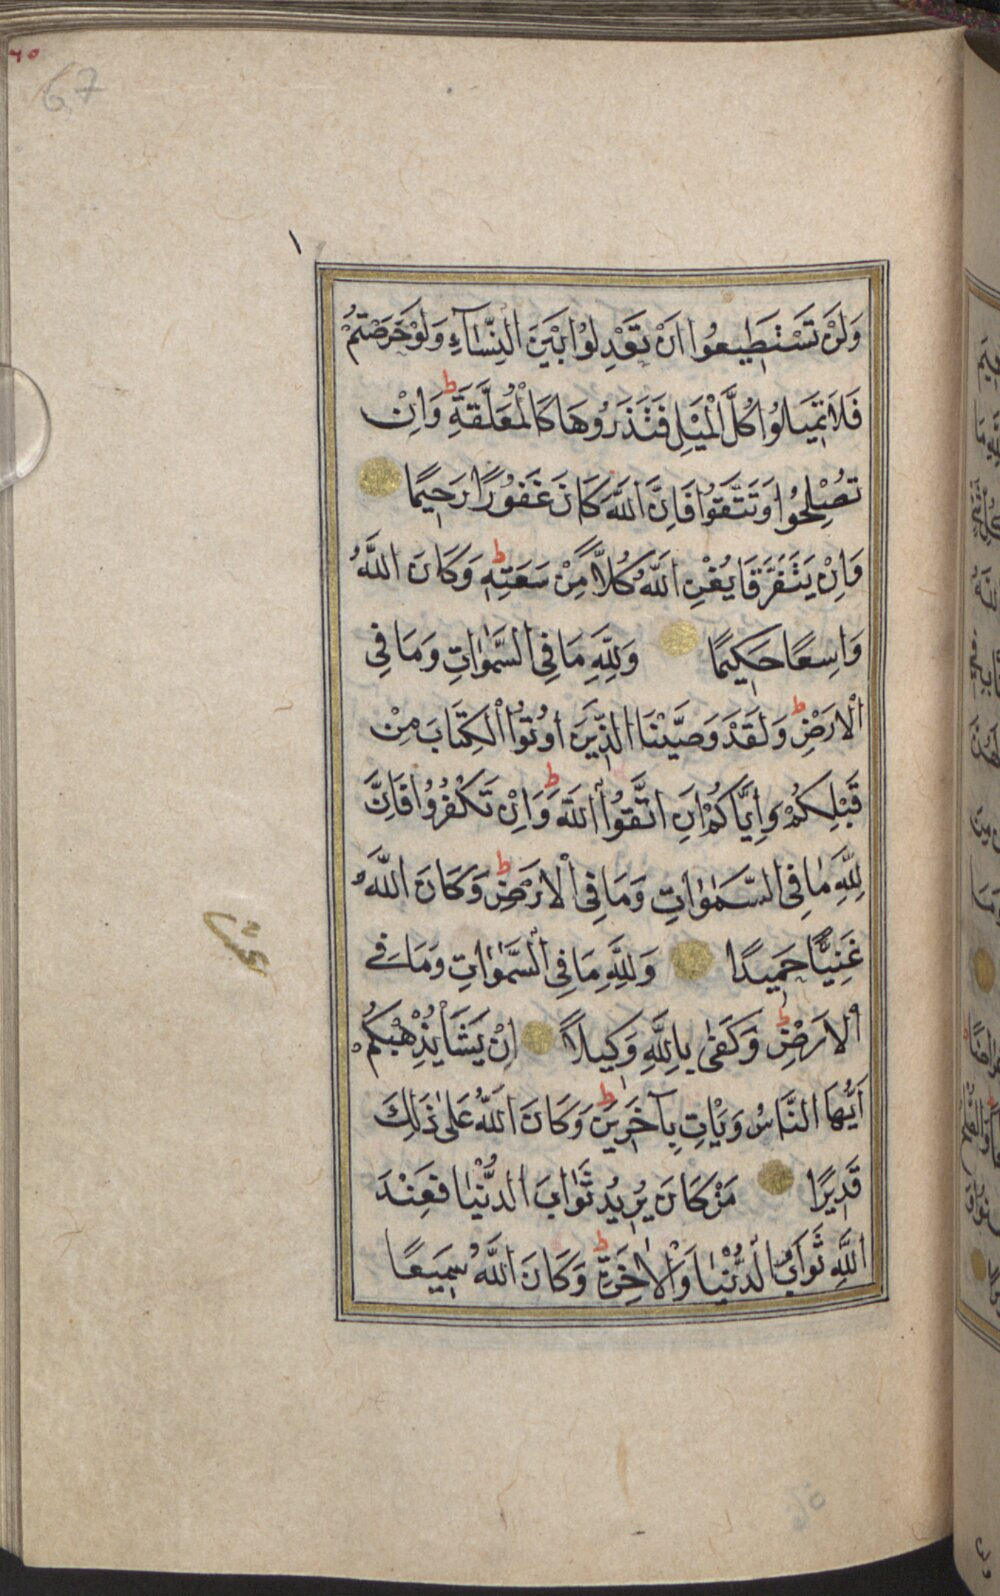 ٦٥
67
١
وَلَنْ تَسْتَطِيعُوا اَنْ تَعْدِلُوا بَيْنَ النِّسَآءِ وَلَوْ حَرَصْتُمْ
فَلَا تَمِيلُوا كُلَّ الْمَيْلِ فَتَذَرُوهَا كَالْمُعَلَّقَةِ ط وَاِنْ
تُصْلِحُوا وَتَتَّقُوا فَاِنَّ اللَّهَ كَانَ غَفُورًا رَحِيمًا
وَاِنْ يَتَفَرَّقَا يُغْنِ اللَّهُ كُلًّا مِنْ سَعَتِهِ ط وَكَانَ اللَّهُ
وَاسِعًا حَكِيمًا وَلِلَّهِ مَا فِي السَّمٰوَاتِ وَمَا فِي
الْاَرْضِ ط وَلَقَدْ وَصَّيْنَا الَّذِينَ اُوتُوا الْكِتَابَ مِنْ
قَبْلِكُمْ وَاِيَّاكُمْ اَنِ اتَّقُوا اللَّهَ ط وَاِنْ تَكْفُرُوا فَاِنَّ
لِلَّهِ مَا فِي السَّمٰوَاتِ وَمَا فِي الْاَرْضِ ط وَكَانَ اللَّهُ
غَنِيًّا حَمِيدًا وَلِلَّهِ مَا فِي السَّمٰوَاتِ وَمَا فِي
الْاَرْضِ ط وَكَفٰى بِاللَّهِ وَكِيلًا اِنْ يَشَأْ يُذْهِبْكُمْ
اَيُّهَا النَّاسُ وَيَاْتِ بِآخَرِينَ ط وَكَانَ اللَّهُ عَلٰى ذٰلِكَ
قَدِيرًا مَنْ كَانَ يُرِيدُ ثَوَابَ الدُّنْيَا فَعِنْدَ
اللَّهِ ثَوَابُ الدُّنْيَا وَالْاٰخِرَةِ ط وَكَانَ اللَّهُ سَمِيعًا